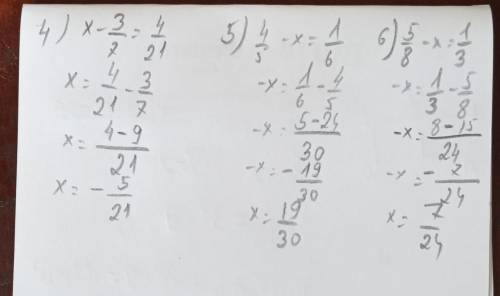 4) x - 3/7 = 4/21
x = 4/21 - 3/7
x = (4 - 9)/21
x = - 5/21
5) 4/5 - x = 1/6
-x = 1/6 - 4/5
-x = (5 - 24)/30
-x = - 19/30
x = 19/30
6) 5/8 - x = 1/3
-x = 1/3 - 5/8
-x = (8 - 15)/24
-x = - 7/24
x = 7/24